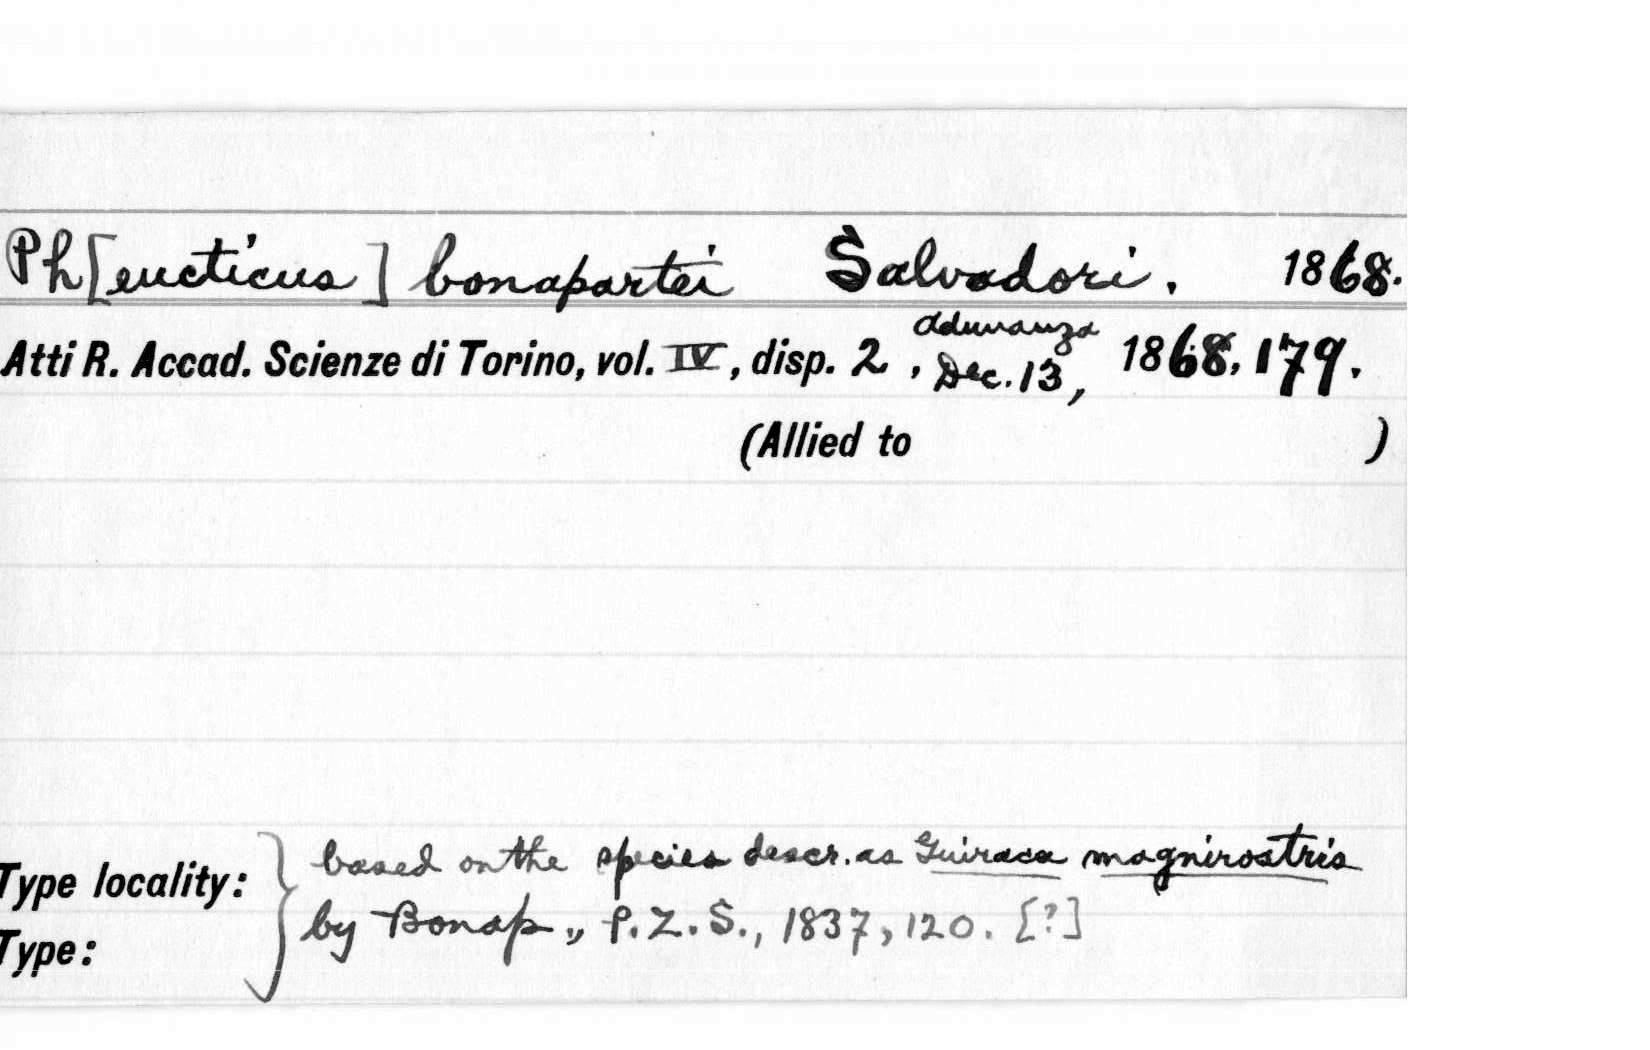 Ph[eucticus] bonapartei Salvadori. 1868.
Atti R. Accad. Scienze di Torino, vol. IV, disp. 2, adunanza Dec. 13, 1868, 179.
(Allied to )
Type locality: } based on the species descr. as Guiraca magnirostris
Type: by Bonap., P.Z.S., 1837, 120. [?]